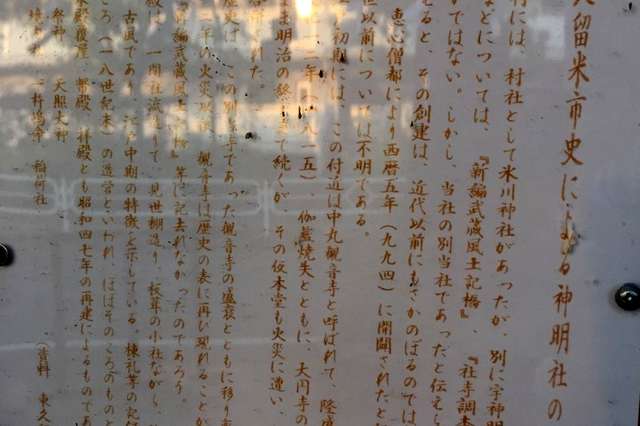 久留米市史による神明社の
村には、村社として氷川神社があったが、別に字神明
などについては、『新編武蔵風土記稿』、『社寺調査
かではない。しかし、当社の別当社であったと伝えら
えると、その創建は、近代以前にもさかのぼるのでは
恵心僧都により西暦五年(九九四)に開闢されたと
世以前については不明である。
初期には、この付近は中丸観音寺と呼ばれて、隆
十二年(一八一五) 伽藍焼失とともに、大円寺の
まま明治の終りまで続くが、その仮本堂も火災に遭い、
された。
歴史は、この別当寺であった観音寺の盛衰とともに移り
二年の火災以後、観音寺は歴史の表に再び現れることが
『新編武蔵風土記稿』等に記去れなかったのであろう。
殿は、一間社流造りで、見世棚造り、板葺の小社ながら、
古風であり、江戸中期の特徴を示している。棟札等の記録
ころ(一八世紀末)の造営といわれ、ほぼそのころのものと
本殿覆屋、幣殿、拝殿とも昭和四七年の再建によるものであ
祭神 天照大神
境内 稲荷社
(資料 東久